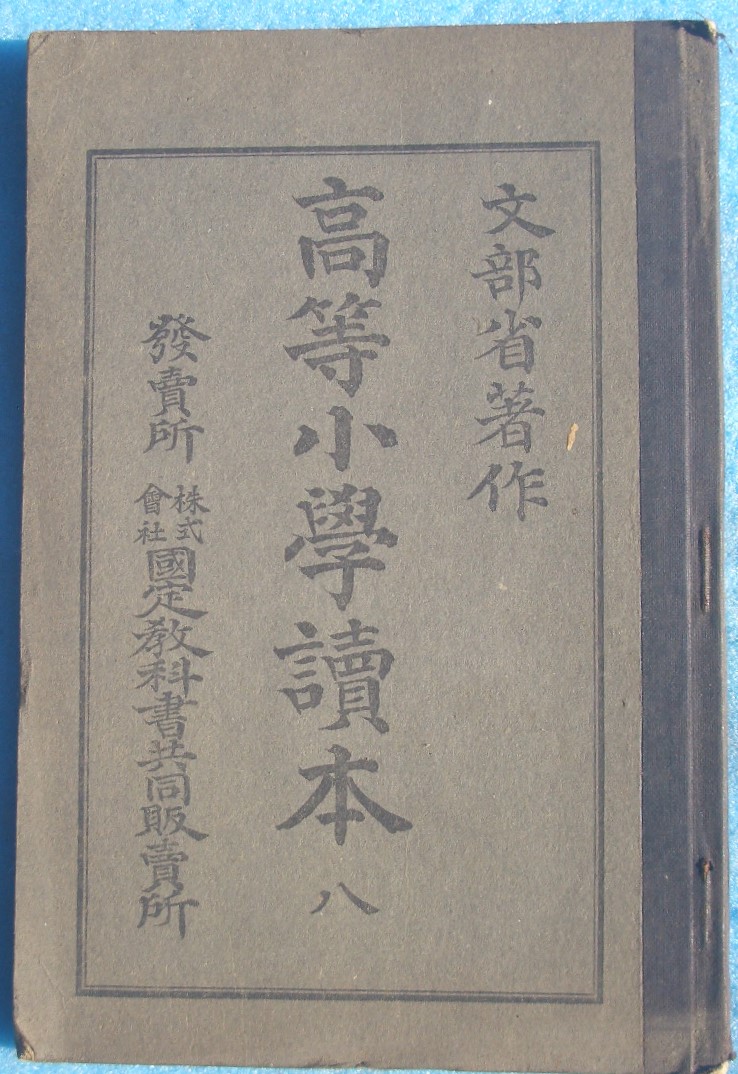 文部省著作
高等小學讀本 八
發賣所 株式會社國定教科書共同販賣所